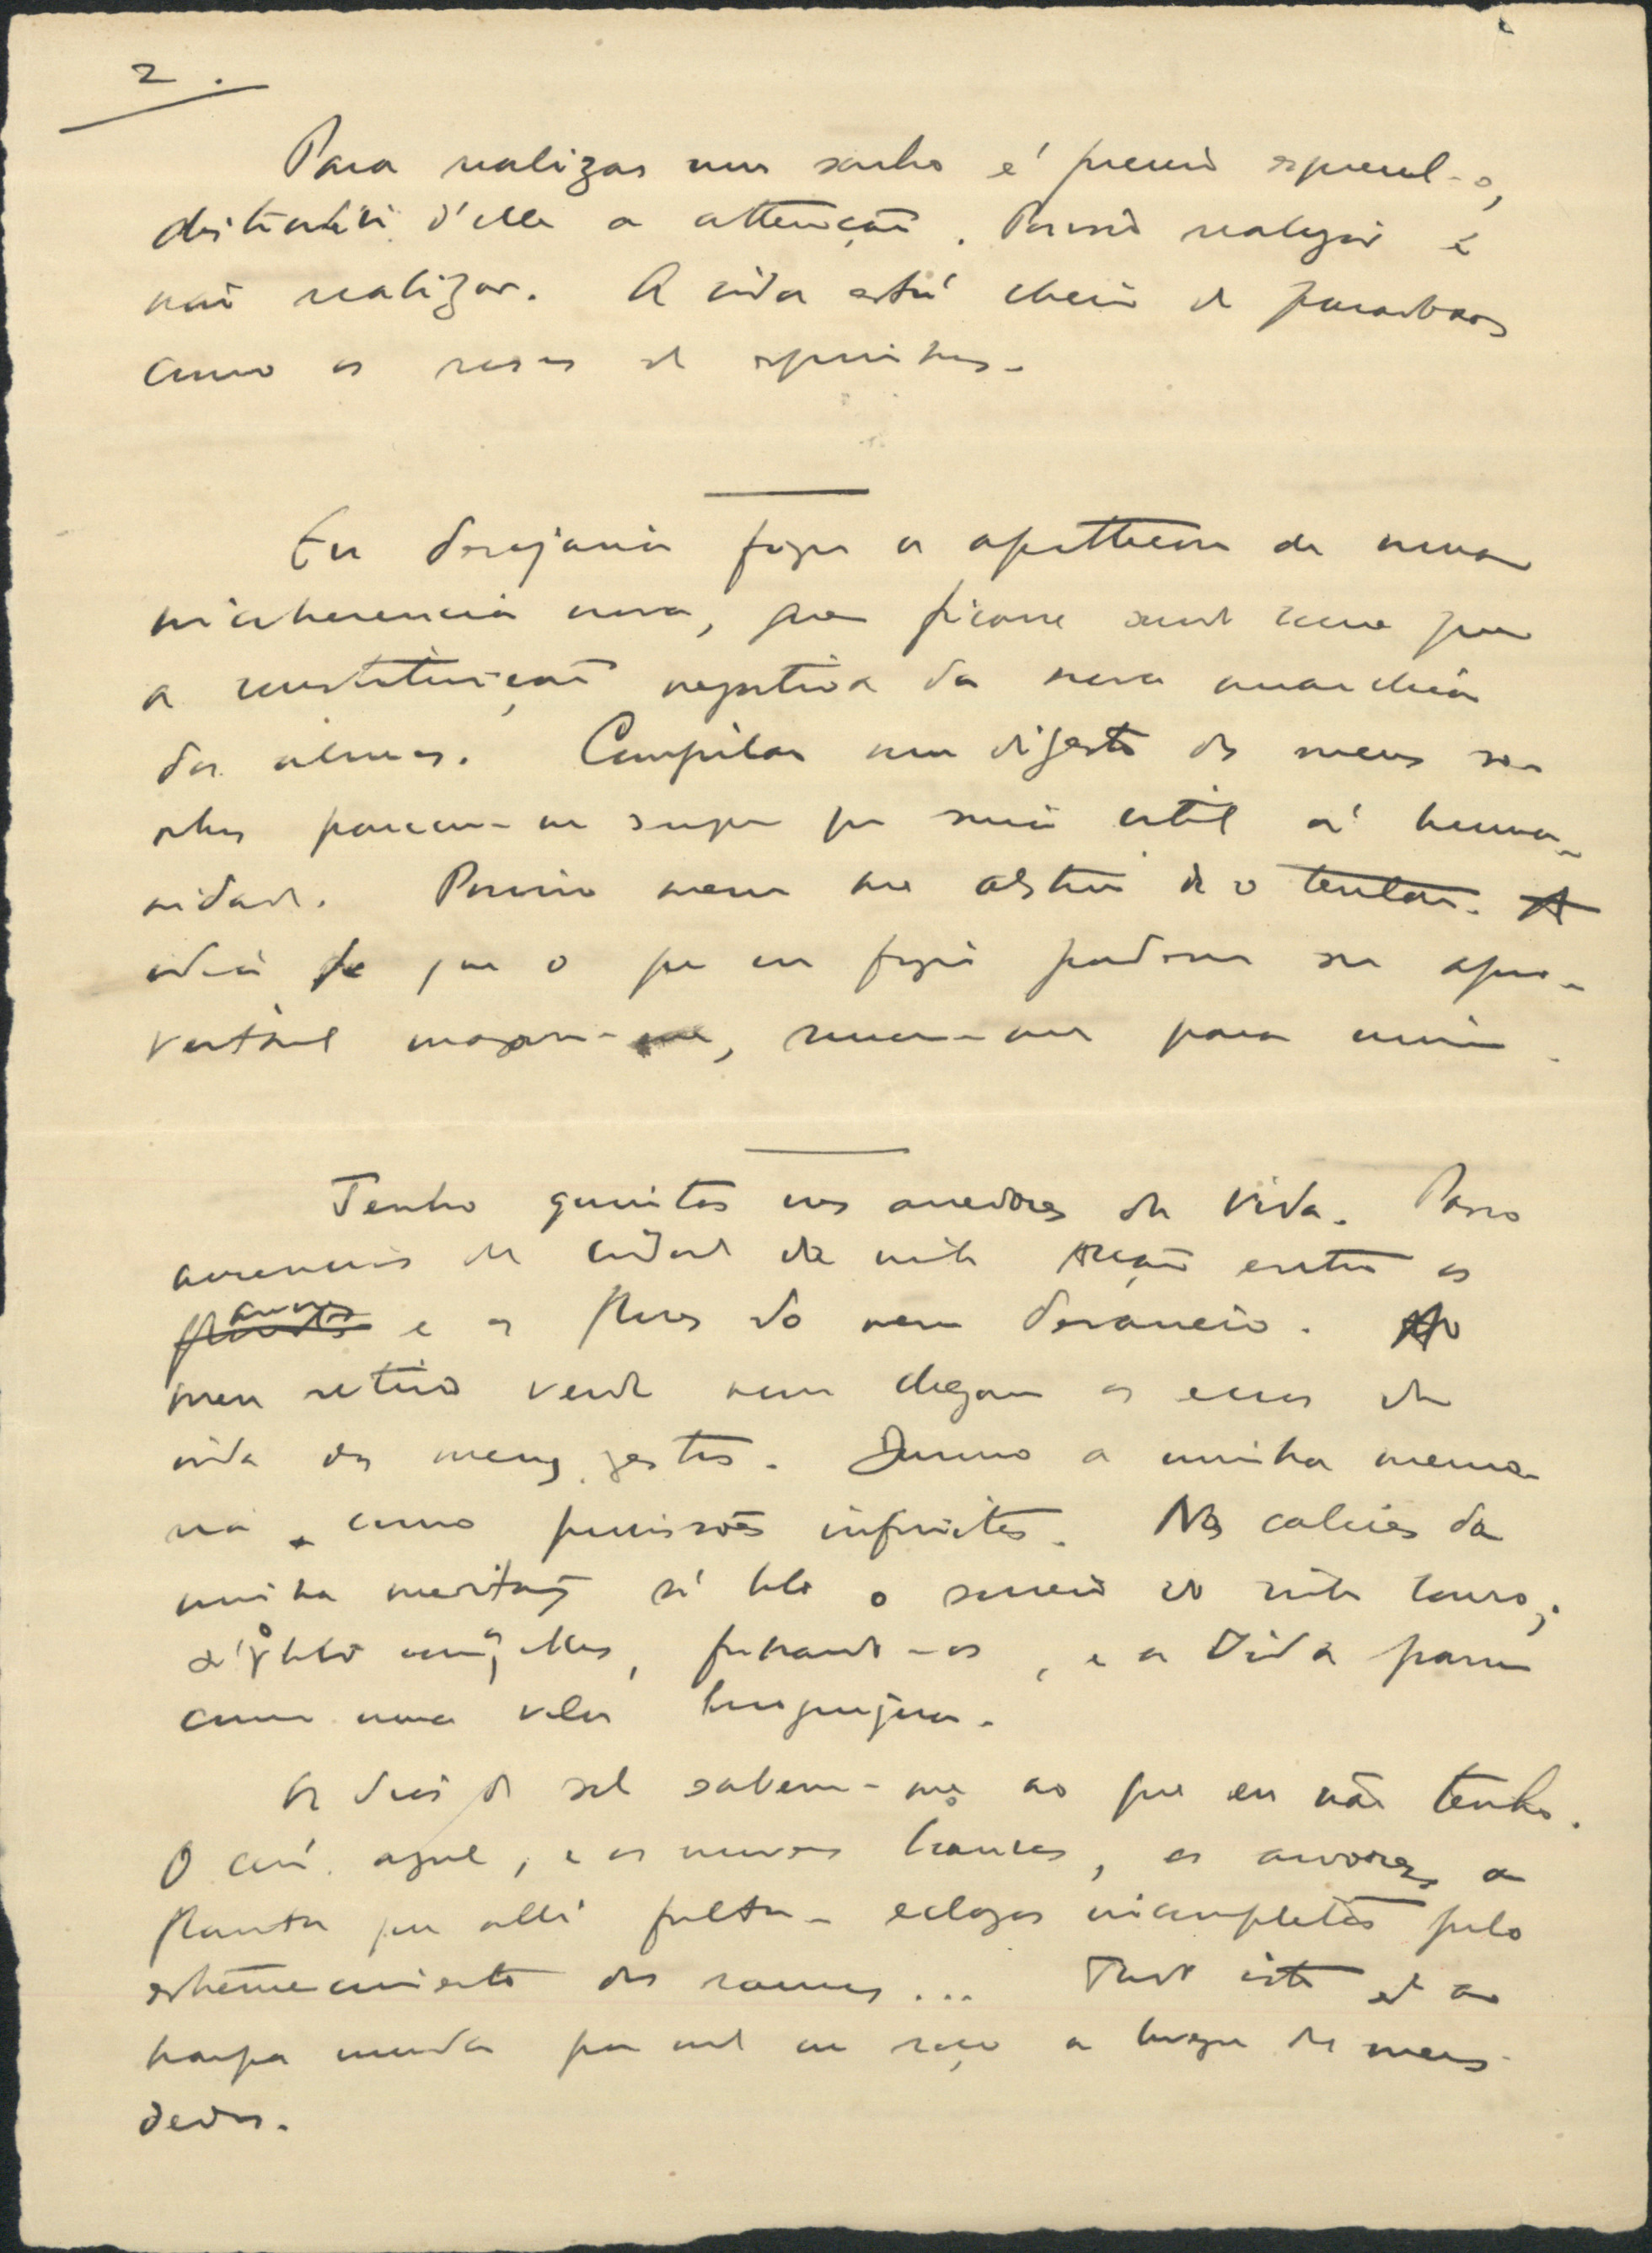 2.
Para realizar um sonho é preciso esquecel-o,
distrahir d'elle a attenção. Por isso realizar é
não realizar. A vida está cheia de paradoxos
como as rosas de espinhos.
Eu desejaria fazer a apotheose de uma
incoherencia nova, que ficasse sendo como que
a constituição negativa da nova anarchia
das almas. Compilar um digesto dos meus so-
nhos pareceu-me sempre que seria util á huma-
nidade. Por isso nunca me abstive de o tentar. A
idéa de que o que eu fazia poderia ser apro-
veitavel magoou-me, seccou-me para mim.
Tenho quintas nos arredores da Vida. Passo
ausencias da cidade da minha Acção entre as
arvores e as flores do meu devaneio. Ao
meu retiro verde nem chegam os eccos da
vida dos meus gestos. Durmo a minha memo-
ria como procissões infinitas. Nos calices da
minha meditação só bebo o sorriso do vinho louro;
só o bebo com os olhos, fechando-os, e a Vida passa
como uma vela longinqua.
Os dias de sol sabem-me ao que eu não tenho.
O céu azul, e as nuvens brancas, as arvores, a
flauta que alli falta - eclogas incompletas pelo
estremecimento dos ramos... Tudo isto é a
harpa muda por onde eu roço a leveza dos meus
dedos.